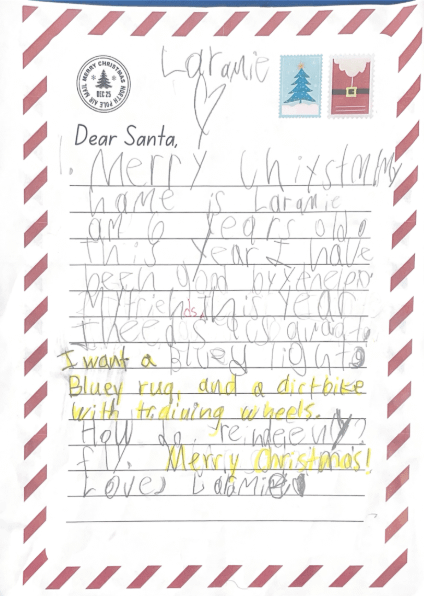 Laramie
MERRY CHRISTMAS NORTH POLE AIR MAIL
DEC 25
Dear Santa,
Merry Chixstm My
name is Laramie
am 6 years old.
this year I have
been good by
My friends This year
I need
I want a Bluey light
Bluey rug, and a dirtbike
with training wheels.
How do reindeer
fly. Merry Christmas!
Love, Laramie